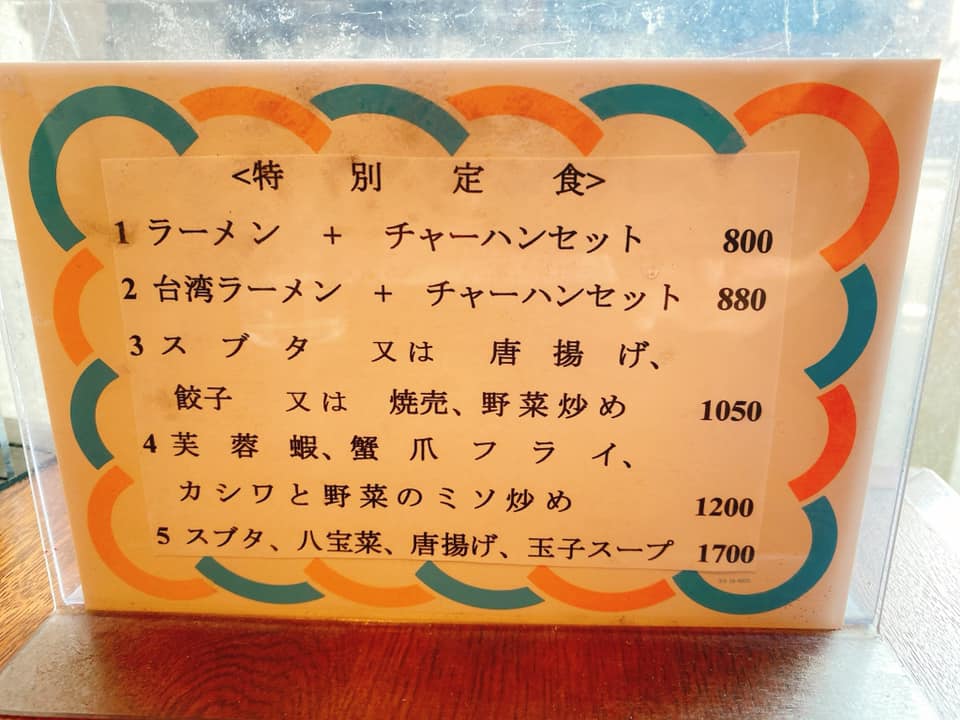 <特 別 定 食>
1 ラーメン + チャーハンセット 800
2 台湾ラーメン + チャーハンセット 880
3 スブタ 又は 唐揚げ、
餃子 又は 焼売、野菜炒め 1050
4 芙蓉蝦、蟹爪フライ、
カシワと野菜のミソ炒め 1200
5 スブタ、八宝菜、唐揚げ、玉子スープ 1700